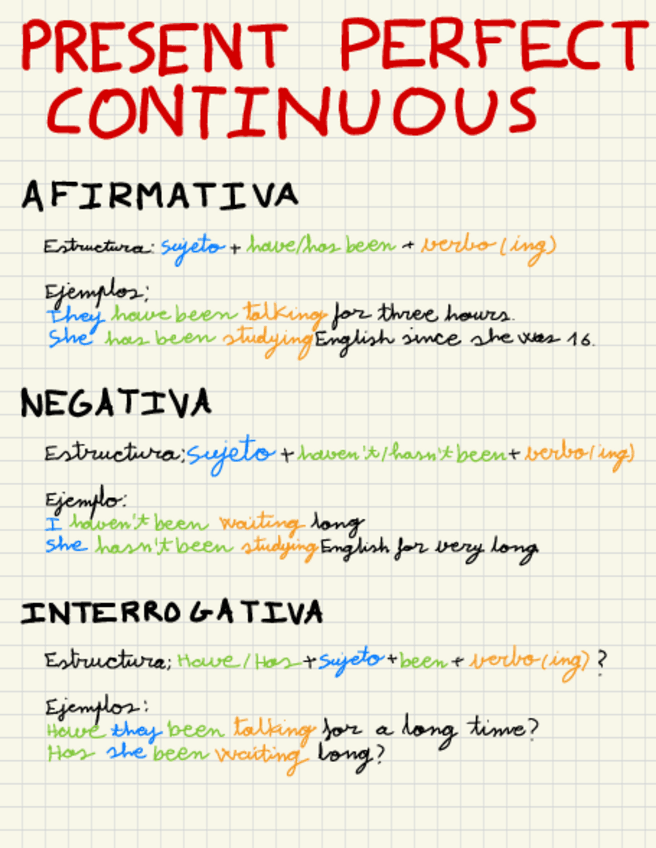 PRESENT PERFECT
CONTINUOUS
AFIRMATIVA
Estructura: Sujeto + have/has been + verbo (ing)
Ejemplos:
they have been talking for three hours.
She has been studying English since she was 16.
NEGATIVA
Estructura: Sujeto + haven't/hasn't been + verbo (ing)
Ejemplo:
I haven't been waiting long
She hasn't been studying English for very long
INTERROGATIVA
Estructura: Have/Has + sujeto + been + verbo (ing) ?
Ejemplos:
Have they been talking for a long time?
Has she been waiting long?